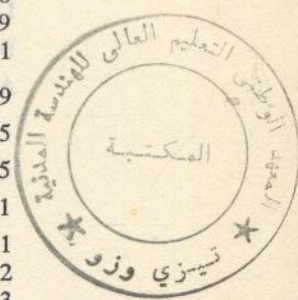 9
1
9
5
5
1
1
2
المعهد الوطني التعليم العالي للهندسة المدنية
المكتبة
تيزي وزو